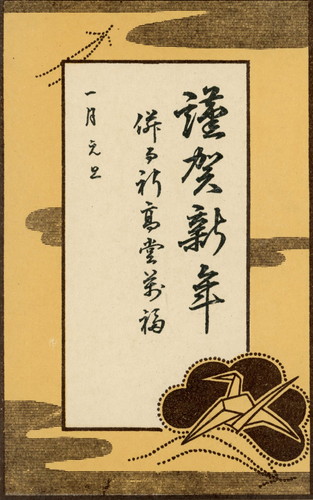 謹賀新年
併而祈高堂萬福
一月元旦